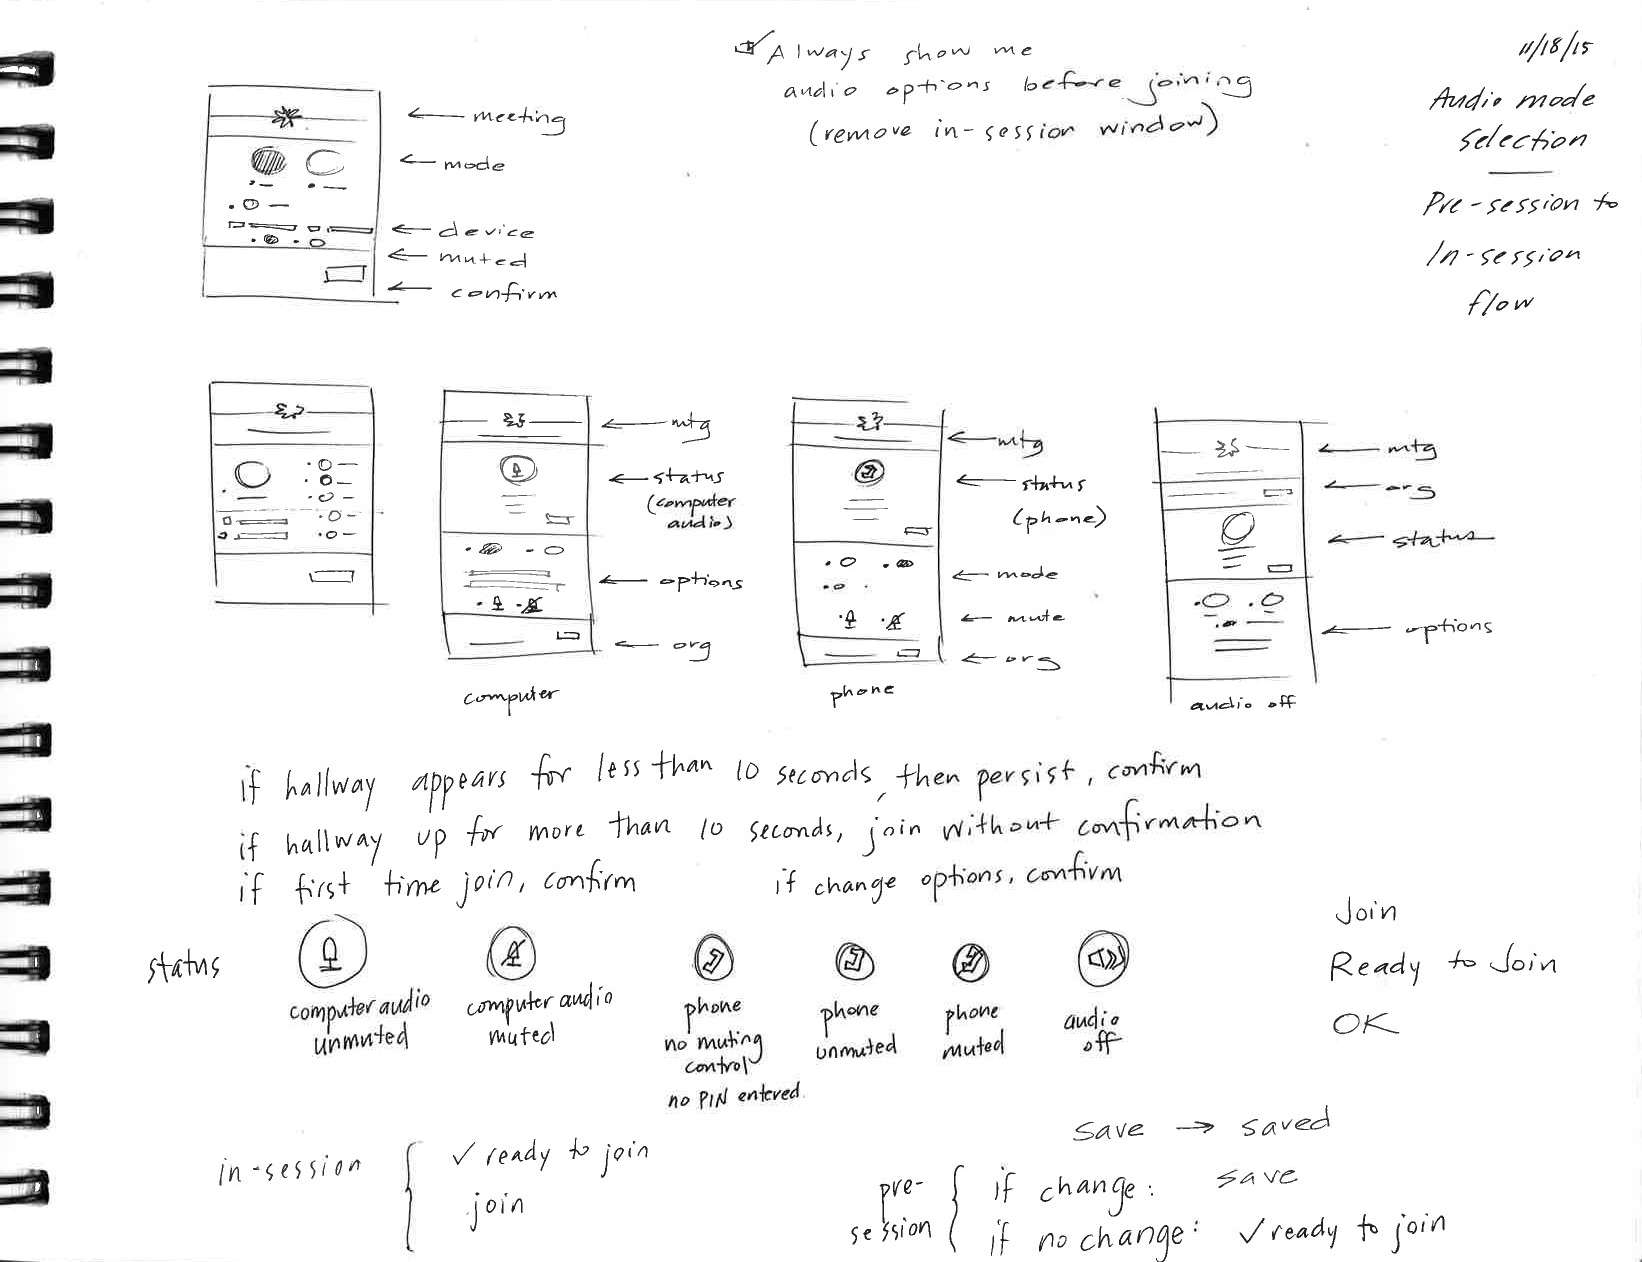 Always show me
audio options before joining
(remove in-session window)
11/18/15
Audio mode
Selection
Pre-session to
In-session
flow
meeting
mode
device
muted
confirm
mtg
status
(computer
audio)
options
org
computer
mtg
status
(phone)
mode
mute
org
phone
mtg
org
status
options
audio off
if hallway appears for less than 10 seconds, then persist, confirm
if hallway up for more than 10 seconds, join without confirmation
if first time join, confirm
if change options, confirm
status
computer audio
unmuted
computer audio
muted
phone
no muting
control
no PIN entered.
phone
unmuted
phone
muted
audio
off
Join
Ready to Join
OK
in-session
✓ ready to join
join
save → saved
pre-
session
if change: save
if no change: ✓ ready to join